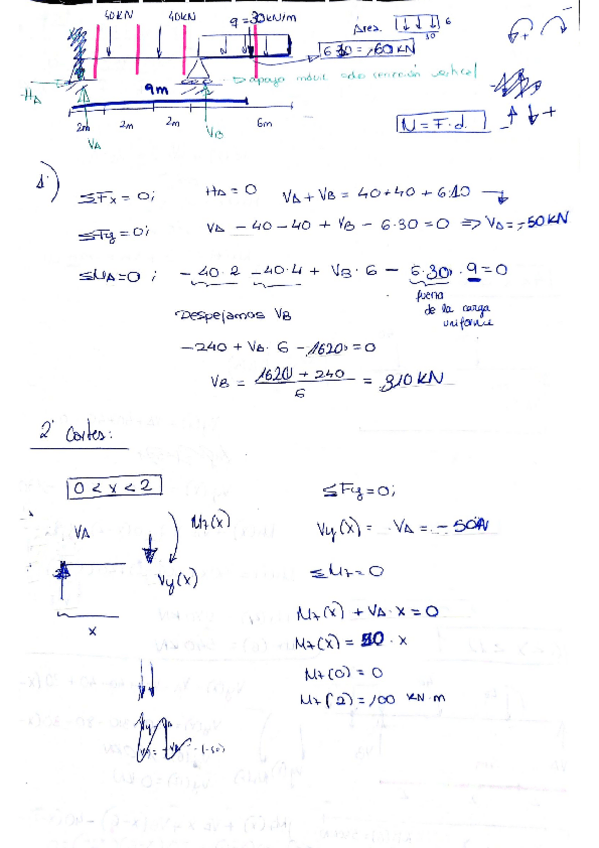 40KN 40KN q=30KN/m Área. 6
10
6·30 = 180 KN
→ apoyo móvil solo reacción vertical
HA 9m
2m 2m 2m 6m
VA VB
M = F·d.
1º)
ΣFx = 0; HA = 0 VA + VB = 40+40 + 6·10
ΣFy = 0; VA - 40 - 40 + VB - 6·30 = 0 ⇒ VA = -50KN
ΣMA = 0 ; - 40·2 - 40·4 + VB·6 - 6·30·9 = 0
fuerza
de la carga
uniforme
Despejamos VB
-240 + VB·6 - 1620 = 0
VB = (1620 + 240)/6 = 310 KN
2º Cortes:
0 < x < 2 ΣFy = 0;
VA Mz(x) Vy(x) = VA = - 50KN
Vy(x) ΣMz = 0
x Mz(x) + VA·x = 0
Mz(x) = 50·x
Mz(0) = 0
Mz(2) = 100 KN·m
(-50)